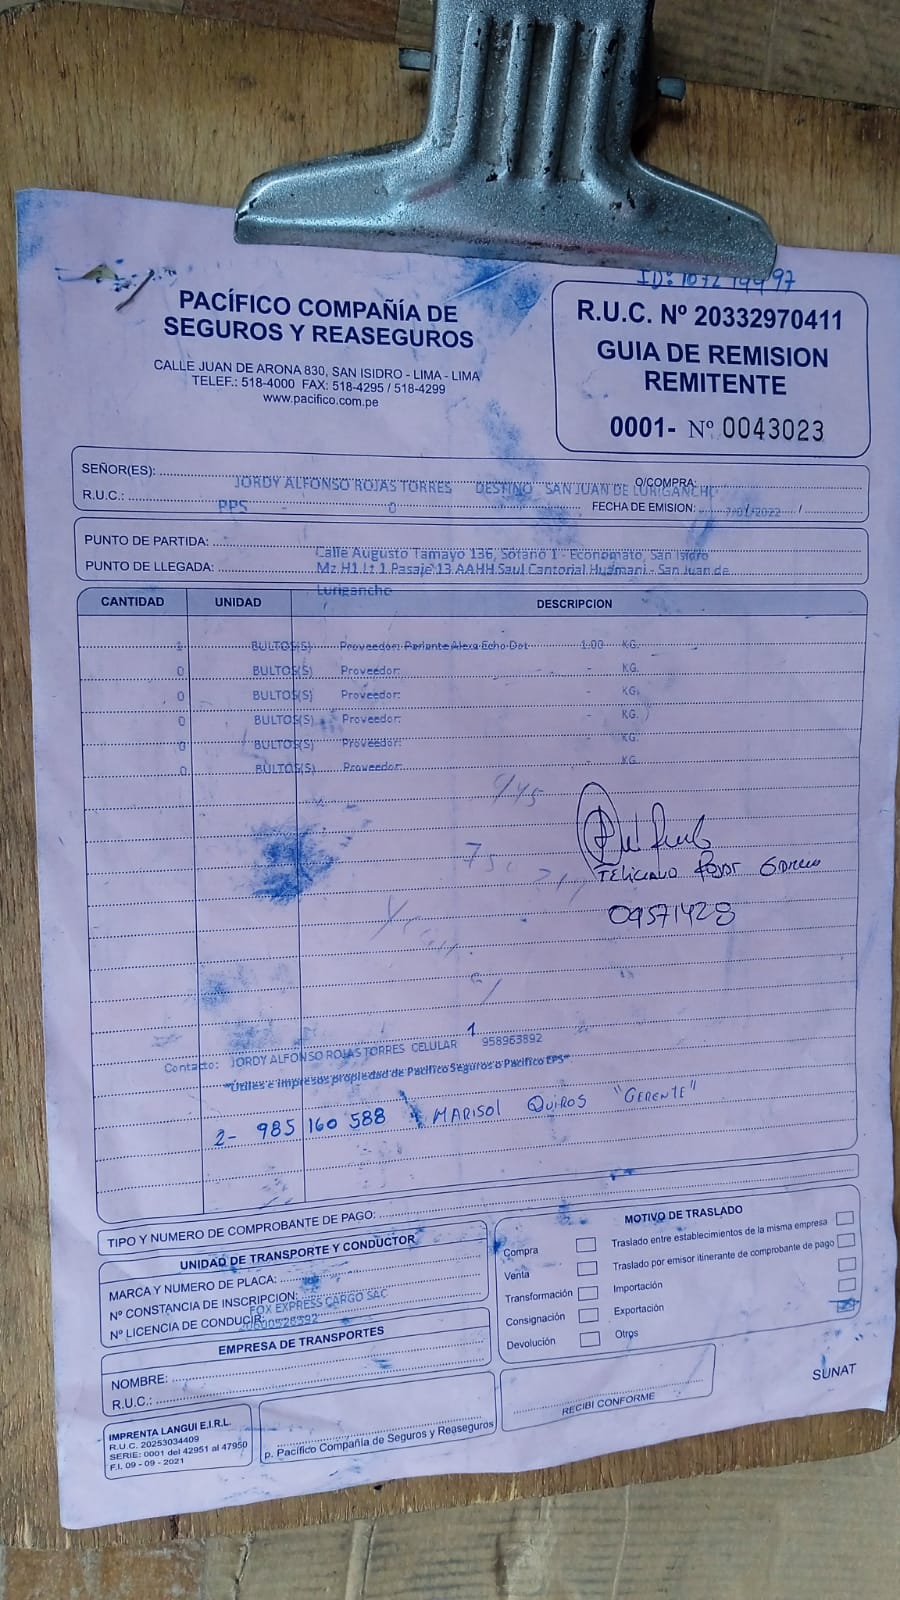 PACÍFICO COMPAÑÍA DE
SEGUROS Y REASEGUROS
CALLE JUAN DE ARONA 830, SAN ISIDRO - LIMA - LIMA
TELEF.: 518-4000 FAX: 518-4295 / 518-4299
www.pacifico.com.pe
R.U.C. Nº 20332970411
GUIA DE REMISION
REMITENTE
0001- Nº 0043023
SEÑOR(ES): JORDY ALFONSO ROJAS TORRES DESTINO SAN JUAN DE LURIGANCHO O/COMPRA:
R.U.C.: PPS - 0 FECHA DE EMISION: 7/01/2022
PUNTO DE PARTIDA: Calle Augusto Tamayo 136, Sotano 1 - Economato, San Isidro
PUNTO DE LLEGADA: Mz H1 Lt 1 Pasaje 13 AAHH Saul Cantorial Huamani - San Juan de
Lurigancho
CANTIDAD UNIDAD DESCRIPCION
1 BULTOS(S) Proveedor: Parlante Alexa Echo Dot 1.00 KG.
0 BULTOS(S) Proveedor: - KG.
0 BULTOS(S) Proveedor: - KG.
0 BULTOS(S) Proveedor: - KG.
0 BULTOS(S) Proveedor: - KG.
0 BULTOS(S) Proveedor: - KG.
09571428
Contacto: JORDY ALFONSO ROJAS TORRES CELULAR 1 958963892
"Utiles e Impresos propiedad de Pacifico Seguros o Pacifico EPS"
2- 985 160 588 MARISOL QUIROS "GERENTE"
TIPO Y NUMERO DE COMPROBANTE DE PAGO:
UNIDAD DE TRANSPORTE Y CONDUCTOR
MARCA Y NUMERO DE PLACA:
Nº CONSTANCIA DE INSCRIPCION:
Nº LICENCIA DE CONDUCIR: FOX EXPRESS CARGO SAC
20600528592
EMPRESA DE TRANSPORTES
NOMBRE:
R.U.C.:
MOTIVO DE TRASLADO
Compra
Venta
Transformación
Consignación
Devolución
Traslado entre establecimientos de la misma empresa
Traslado por emisor itinerante de comprobante de pago
Importación
Exportación
Otros
IMPRENTA LANGUI E.I.R.L.
R.U.C. 20253034409
SERIE: 0001 del 42951 al 47950
F.I. 09 - 09 - 2021
p. Pacífico Compañía de Seguros y Reaseguros
RECIBI CONFORME
SUNAT